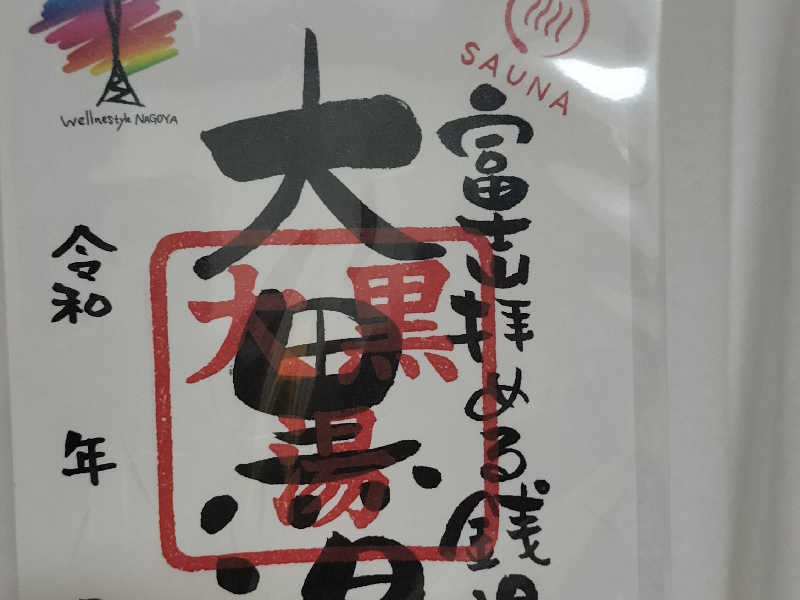 Wellnestyle NAGOYA
SAUNA
富士山拝める銭湯
大黒湯
大黒
湯
令和 年